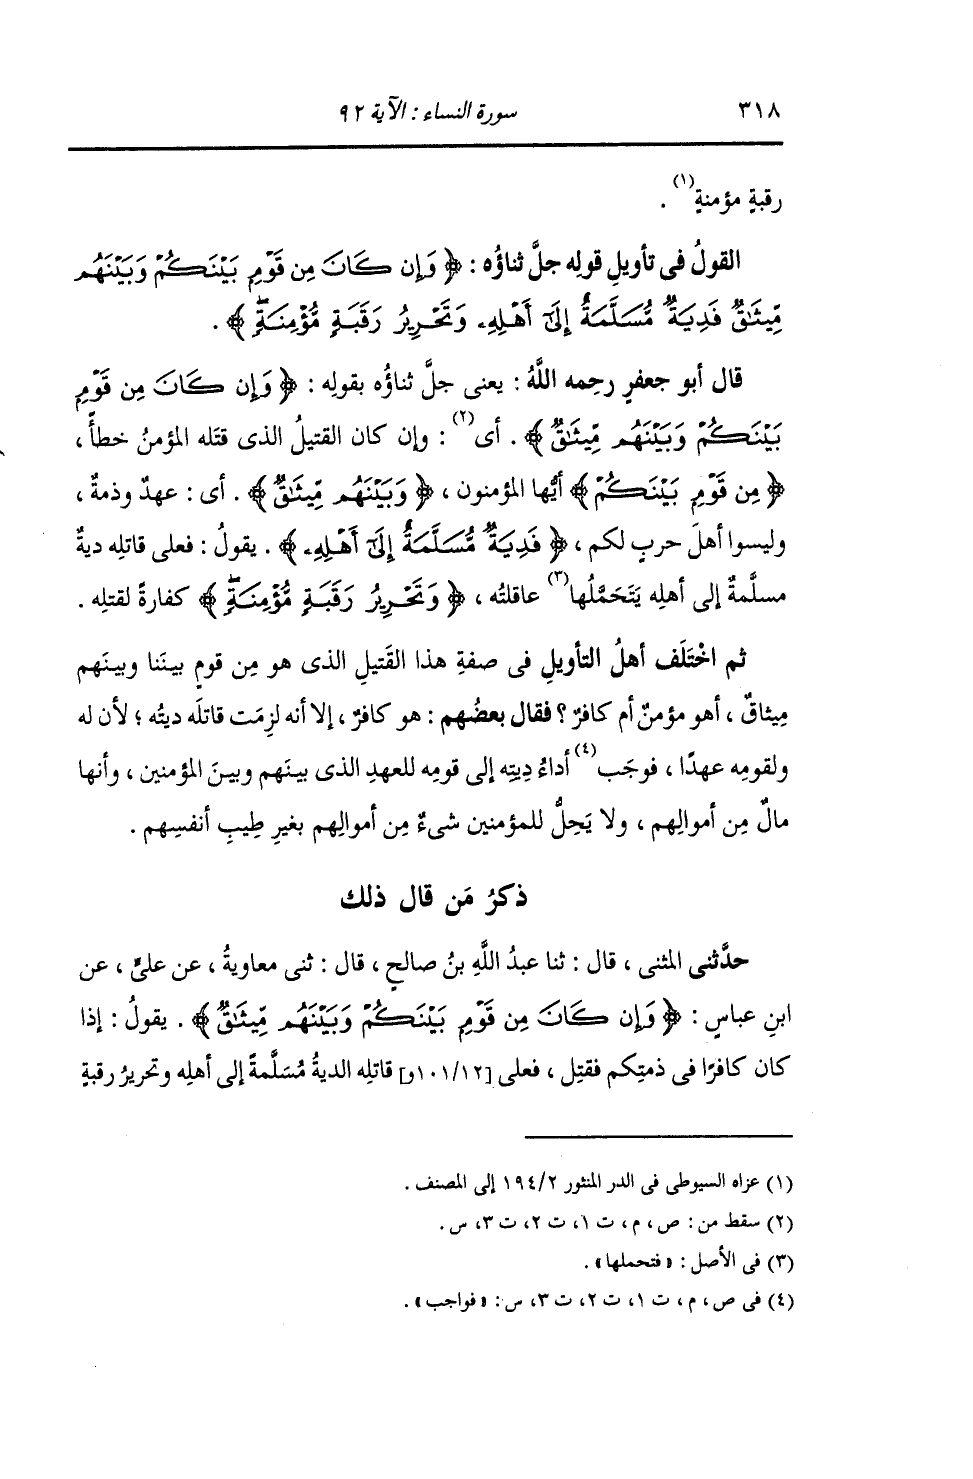 ٣١٨ سورة النساء : الآية ٩٢
رقبةٍ مؤمنةٍ(١) .
القولُ فى تأويلِ قولِه جلَّ ثناؤُه : ﴿ وَإِن كَانَ مِن قَوْمٍۭ بَيْنَكُمْ وَبَيْنَهُم
مِّيثَٰقٌ فَدِيَةٌ مُّسَلَّمَةٌ إِلَىٰٓ أَهْلِهِۦ وَتَحْرِيرُ رَقَبَةٍ مُّؤْمِنَةٍۖ ﴾ .
قال أبو جعفرٍ رحِمه اللَّهُ : يعنى جلَّ ثناؤُه بقولِه : ﴿ وَإِن كَانَ مِن قَوْمٍۭ
بَيْنَكُمْ وَبَيْنَهُم مِّيثَٰقٌ ﴾ . أى(٢) : وإن كان القتيلُ الذى قتَله المؤمنُ خطأً ،
﴿ مِن قَوْمٍۭ بَيْنَكُمْ ﴾ أيُّها المؤمنون ، ﴿ وَبَيْنَهُم مِّيثَٰقٌ ﴾ . أى : عهدٌ وذمةٌ ،
وليسوا أهلَ حربٍ لكم ، ﴿ فَدِيَةٌ مُّسَلَّمَةٌ إِلَىٰٓ أَهْلِهِۦ ﴾ . يقولُ : فعلى قاتلِه ديةٌ
مسلَّمةٌ إلى أهلِه يَتَحَمَّلُها(٣) عاقلتُه ، ﴿ وَتَحْرِيرُ رَقَبَةٍ مُّؤْمِنَةٍۖ ﴾ كفارةً لقتلِه .
ثم اخْتَلَف أهلُ التأويلِ فى صفةِ هذا القَتيلِ الذى هو مِن قومٍ بينَنا وبينَهم
مِيثاقٌ ، أهو مؤمنٌ أم كافرٌ ؟ فقال بعضُهم : هو كافرٌ ، إلا أنه لزِمَت قاتلَه ديتُه ؛ لأن له
ولقومِه عهدًا ، فوجَب(٤) أداءُ دِيتِه إلى قومِه للعهدِ الذى بينَهم وبينَ المؤمنين ، وأنها
مالٌ مِن أموالِهم ، ولا يَحِلُّ للمؤمنين شىءٌ مِن أموالِهم بغيرِ طِيبِ أنفسِهم .
ذكرُ مَن قال ذلك
حدَّثنى المثنى ، قال : ثنا عبدُ اللَّهِ بنُ صالحٍ ، قال : ثنى معاويةُ ، عن علىٍّ ، عن
ابنِ عباسٍ : ﴿ وَإِن كَانَ مِن قَوْمٍۭ بَيْنَكُمْ وَبَيْنَهُم مِّيثَٰقٌ ﴾ . يقولُ : إذا
كان كافرًا فى ذمتِكم فقتِل ، فعلى [١٠١/١٢و] قاتلِه الديةُ مُسَلَّمةً إلى أهلِه وتحريرُ رقبةٍ
(١) عزاه السيوطى فى الدر المنثور ١٩٤/٢ إلى المصنف .
(٢) سقط من : ص ، م ، ت ١، ت ٢، ت ٣، س .
(٣) فى الأصل : « فتحملها » .
(٤) فى ص ، م ، ت ١، ت ٢، ت ٣، س : « فواجب » .